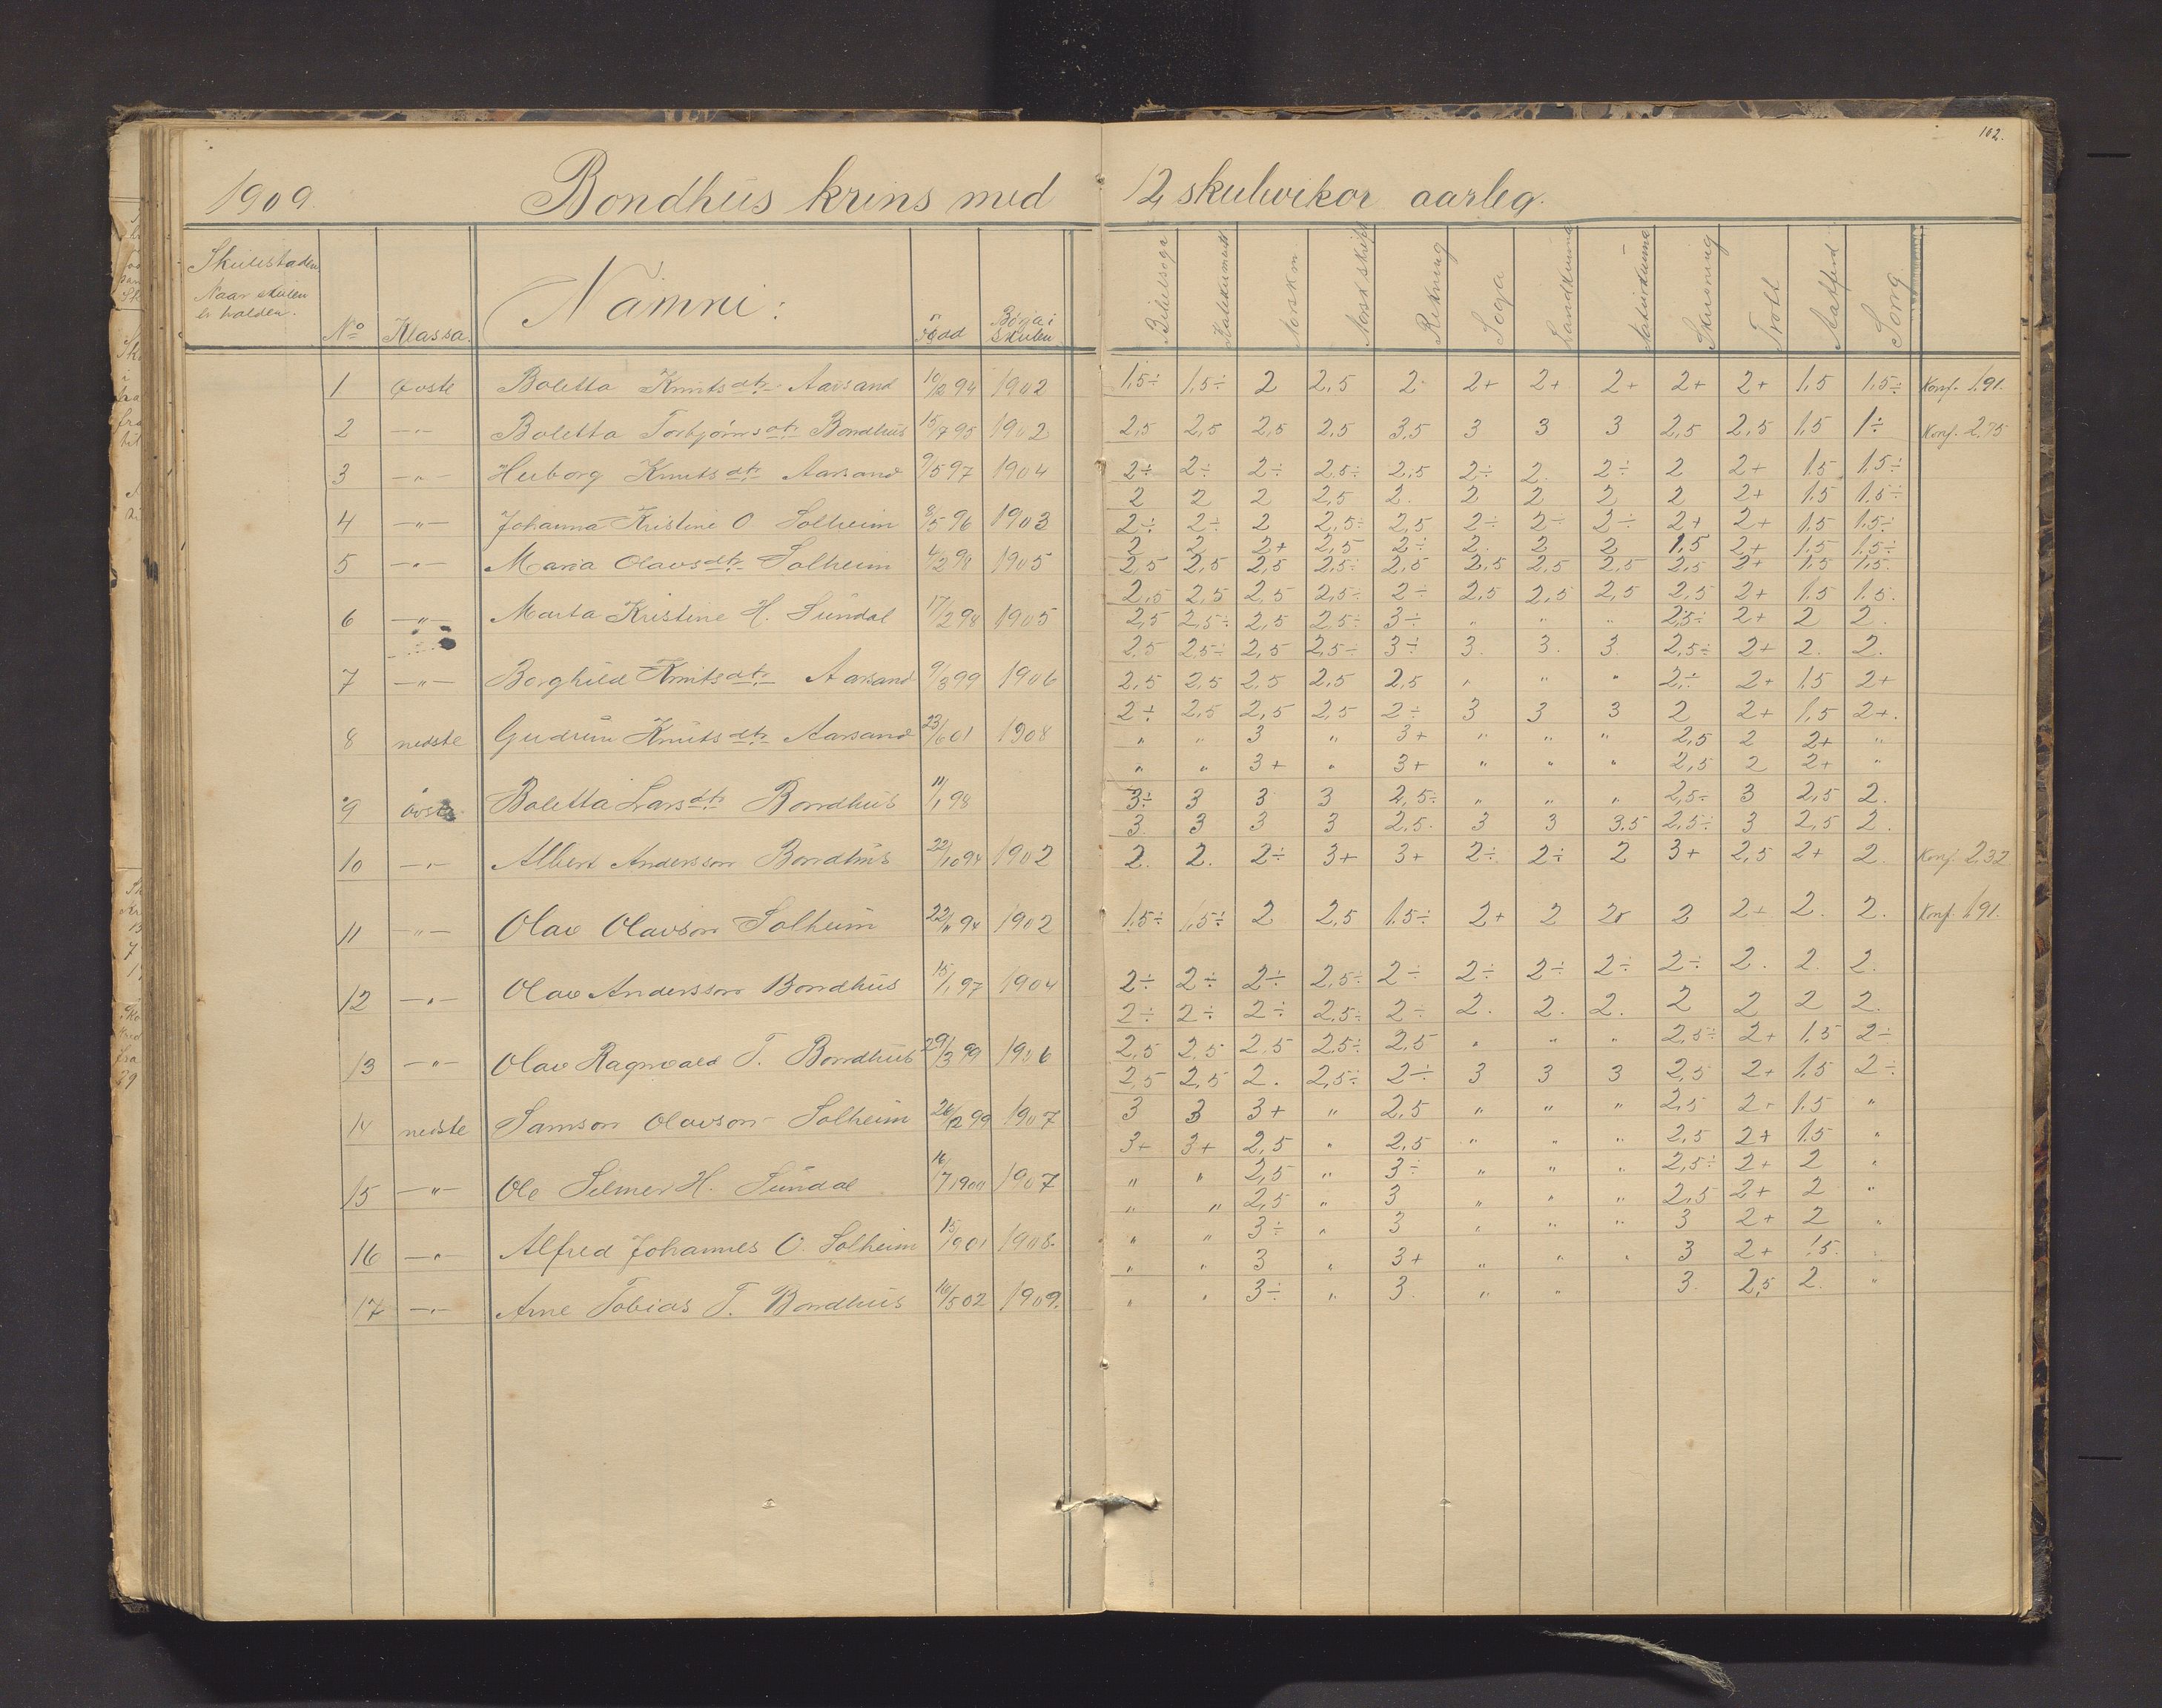 102.
1909. Bondhus krins med 12 skulevikor aarleg.
Skulestaden Naar skulen er halden. No Klassa. Namni: Fødd Børja i skulen Bibelsoga Norsk m Norsk skrift Rekning Soga Landkunna Naturkunna Skrivning Trott Aatferd Song
1 övste Boletta Knutsdtr. Aarsand 10/12 94 1902 1,5÷ 1,5÷ 2 2,5 2 2+ 2+ 2+ 2+ 2+ 1,5 1,5÷ Konf. 1.91.
2 —"— Boletta Torbjørnsdtr. Bondhus 15/7 95 1902 2,5 2,5 2,5 2,5 3,5 3 3 3 2,5 2,5 1,5 1÷ Konf. 2.75
3 —"— Herborg Knutsdtr. Aarsand 9/5 97 1904 2÷ 2÷ 2÷ 2,5÷ 2,5 2÷ 2. 2÷ 2 2+ 1,5 1,5÷
2 2 2 2,5 2. 2 2 2 2 2+ 1.5 1.5÷
4 —"— Johanna Kristine O Solheim 8/5 96 1903 2÷ 2÷ 2 2,5÷ 2,5 2÷ 2÷ 2÷ 2+ 2+ 1,5 1,5÷
2 2 2+ 2,5 2÷ 2. 2 2 1,5 2+ 1,5 1,5÷
5 —"— Maria Olavsdtr. Solheim 4/2 98 1905 2,5 2,5 2,5 2,5÷ 2,5 2,5 2,5 2,5 2,5 2+ 1,5 1,5.
2,5 2,5 2,5 2,5÷ 2÷ 2,5 2,5 2,5 2,5 2+ 1.5 1.5.
6 —"— Marta Kristine H. Sundal 17/2 98 1905 2,5 2,5÷ 2,5 2,5÷ 3÷ " " " 2,5÷ 2+ 2 2.
2,5 2,5÷ 2,5 2,5÷ 3÷ 3. 3. 3. 2,5÷ 2+ 2. 2.
7 —"— Borghild Knutsdtr. Aarsand 9/3 99 1906 2,5 2,5 2,5 2,5 2,5 " " " 2÷ 2+ 1.5 2+
2÷ 2,5 2,5 2,5 2÷ 3 3 3 2 2+ 1,5 2+.
8 nedste Gudrun Knutsdtr. Aarsand 23/6 01 1908 " " 3 " 3+ " " " 2,5 2 2+ "
" " 3+ " 3+ " " " 2,5 2 2+ "
9 övste Boletta Larsdtr. Bondhus 11/1 98 3÷ 3 3 3 2,5÷ " " " 2,5÷ 3 2,5 2.
3 3 3 3 2,5. 3 3 3.5 2,5÷ 3 2,5 2.
10 —"— Albert Andersson Bondhus 22/10 94 1902 2. 2. 2÷ 3+ 3+ 2÷ 2÷ 2 3+ 2,5 2+ 2. Konf. 2.32
11 —"— Olav Olavson Solheim 22/11 94 1902 1.5÷ 1,5÷ 2 2,5 1.5÷ 2+ 2 2 2+ 2. 2. Konf. 1.91.
12 —"— Olav Andersson Bondhus 15/1 97 1904 2÷ 2÷ 2÷ 2,5÷ 2÷ 2÷ 2÷ 2÷ 2÷ 2. 2. 2.
2÷ 2÷ 2÷ 2,5÷ 2÷ 2. 2. 2. 2 2 2 2.
13 —"— Olav Ragnvald T. Bondhus 29/3 99 1906 2,5 2,5 2.5 2,5÷ 2.5 " " " 2,5÷ 2+ 1.5 2÷
2,5 2,5 2. 2,5÷ 2÷ 3 3 3 2,5 2+ 1.5 2÷
14 nedste Samson Olavson Solheim 26/12 99 1907 3 3 3+ " 2,5 " " " 2,5 2+ 1.5 "
3+ 3+ 2,5 " 2,5 " " " 2,5 2+ 1.5 "
15 —"— Ole Selmer H. Sundal 16/7 1900 1907 " " 2,5 " 3÷ " " " 2,5÷ 2+ 2 "
" " 2,5 " 3 " " " 2,5 2+ 2 "
16 —"— Alfred Johannes O. Solheim 15/1 901 1908. " " 3÷ " 3 " " " 3 2+ 2 "
" " 3 " 3+ " " " 3 2+ 1.5. "
17 —"— Arne Tobias T. Bondhus 14/5 02 1909. " " 3÷ " 3. " " 3. 2,5 2. "